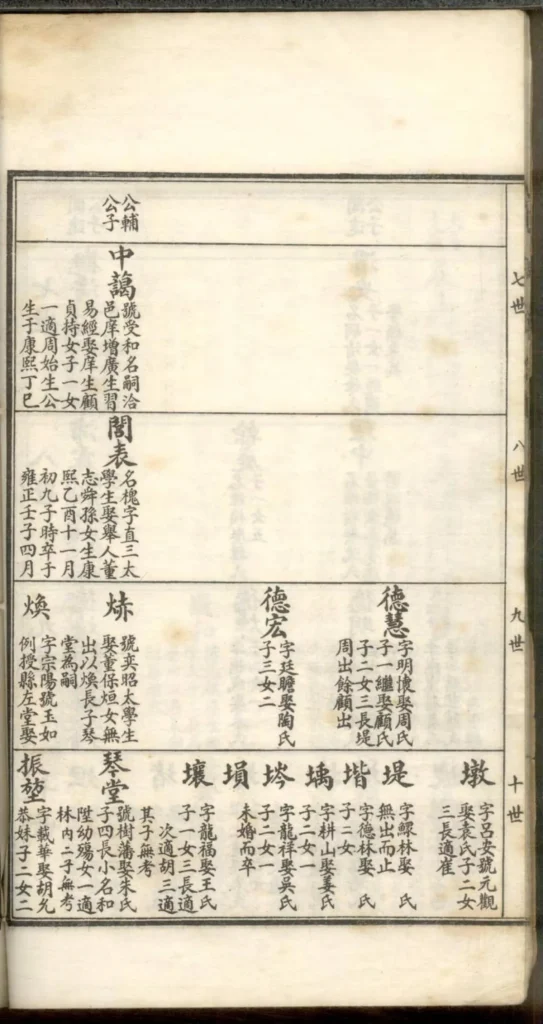 七世
八世
九世
十世
公輔
公子
中藹
號受和名嗣洽
邑庠增廣生習
易經娶庠生顧
貞持女子一女
一適周始生公
生于康熙丁巳
閣表
名槐字直三太
學生娶舉人董
志舜孫女生康
熙乙酉十一月
初九子時卒于
雍正壬子四月
德慧
字明懷娶周氏
子一繼娶顧氏
子二女三長堤
周出餘顧出
德宏
字廷瞻娶陶氏
子三女二
號奕昭太學生
娶董保烜女無
出以煥長子琴
堂為嗣
煥
字宗陽號玉如
例授縣左堂娶
墩
字呂安號元觀
娶袁氏子二女
三長適崔
堤
字鰥林娶 氏
無出而止
堦
字德林娶 氏
子二女
堣
字耕山娶姜氏
子二女一
埁
字龍祥娶吳氏
子二女一
塤
未婚而卒
壤
字龍福娶王氏
子一女三長適
次適胡三適
其子無考
琴堂
號樹藩娶朱氏
子四長小名和
陞幼殤女一適
林內二子無考
振堃
字載華娶胡允
恭妹子二女二